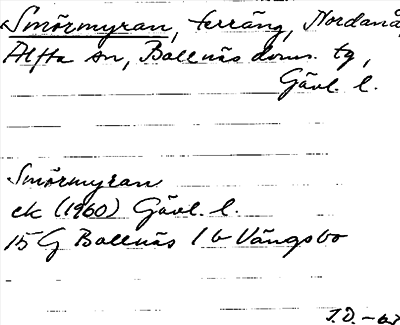 Smörmyran, terräng, Nordanå,
Alfta sn, Bollnäs doms. tg,
Gävl. l.
Smörmyran
ek (1960) Gävl. l.
15 G Bollnäs 1 b Vängsbo
J.D. -63